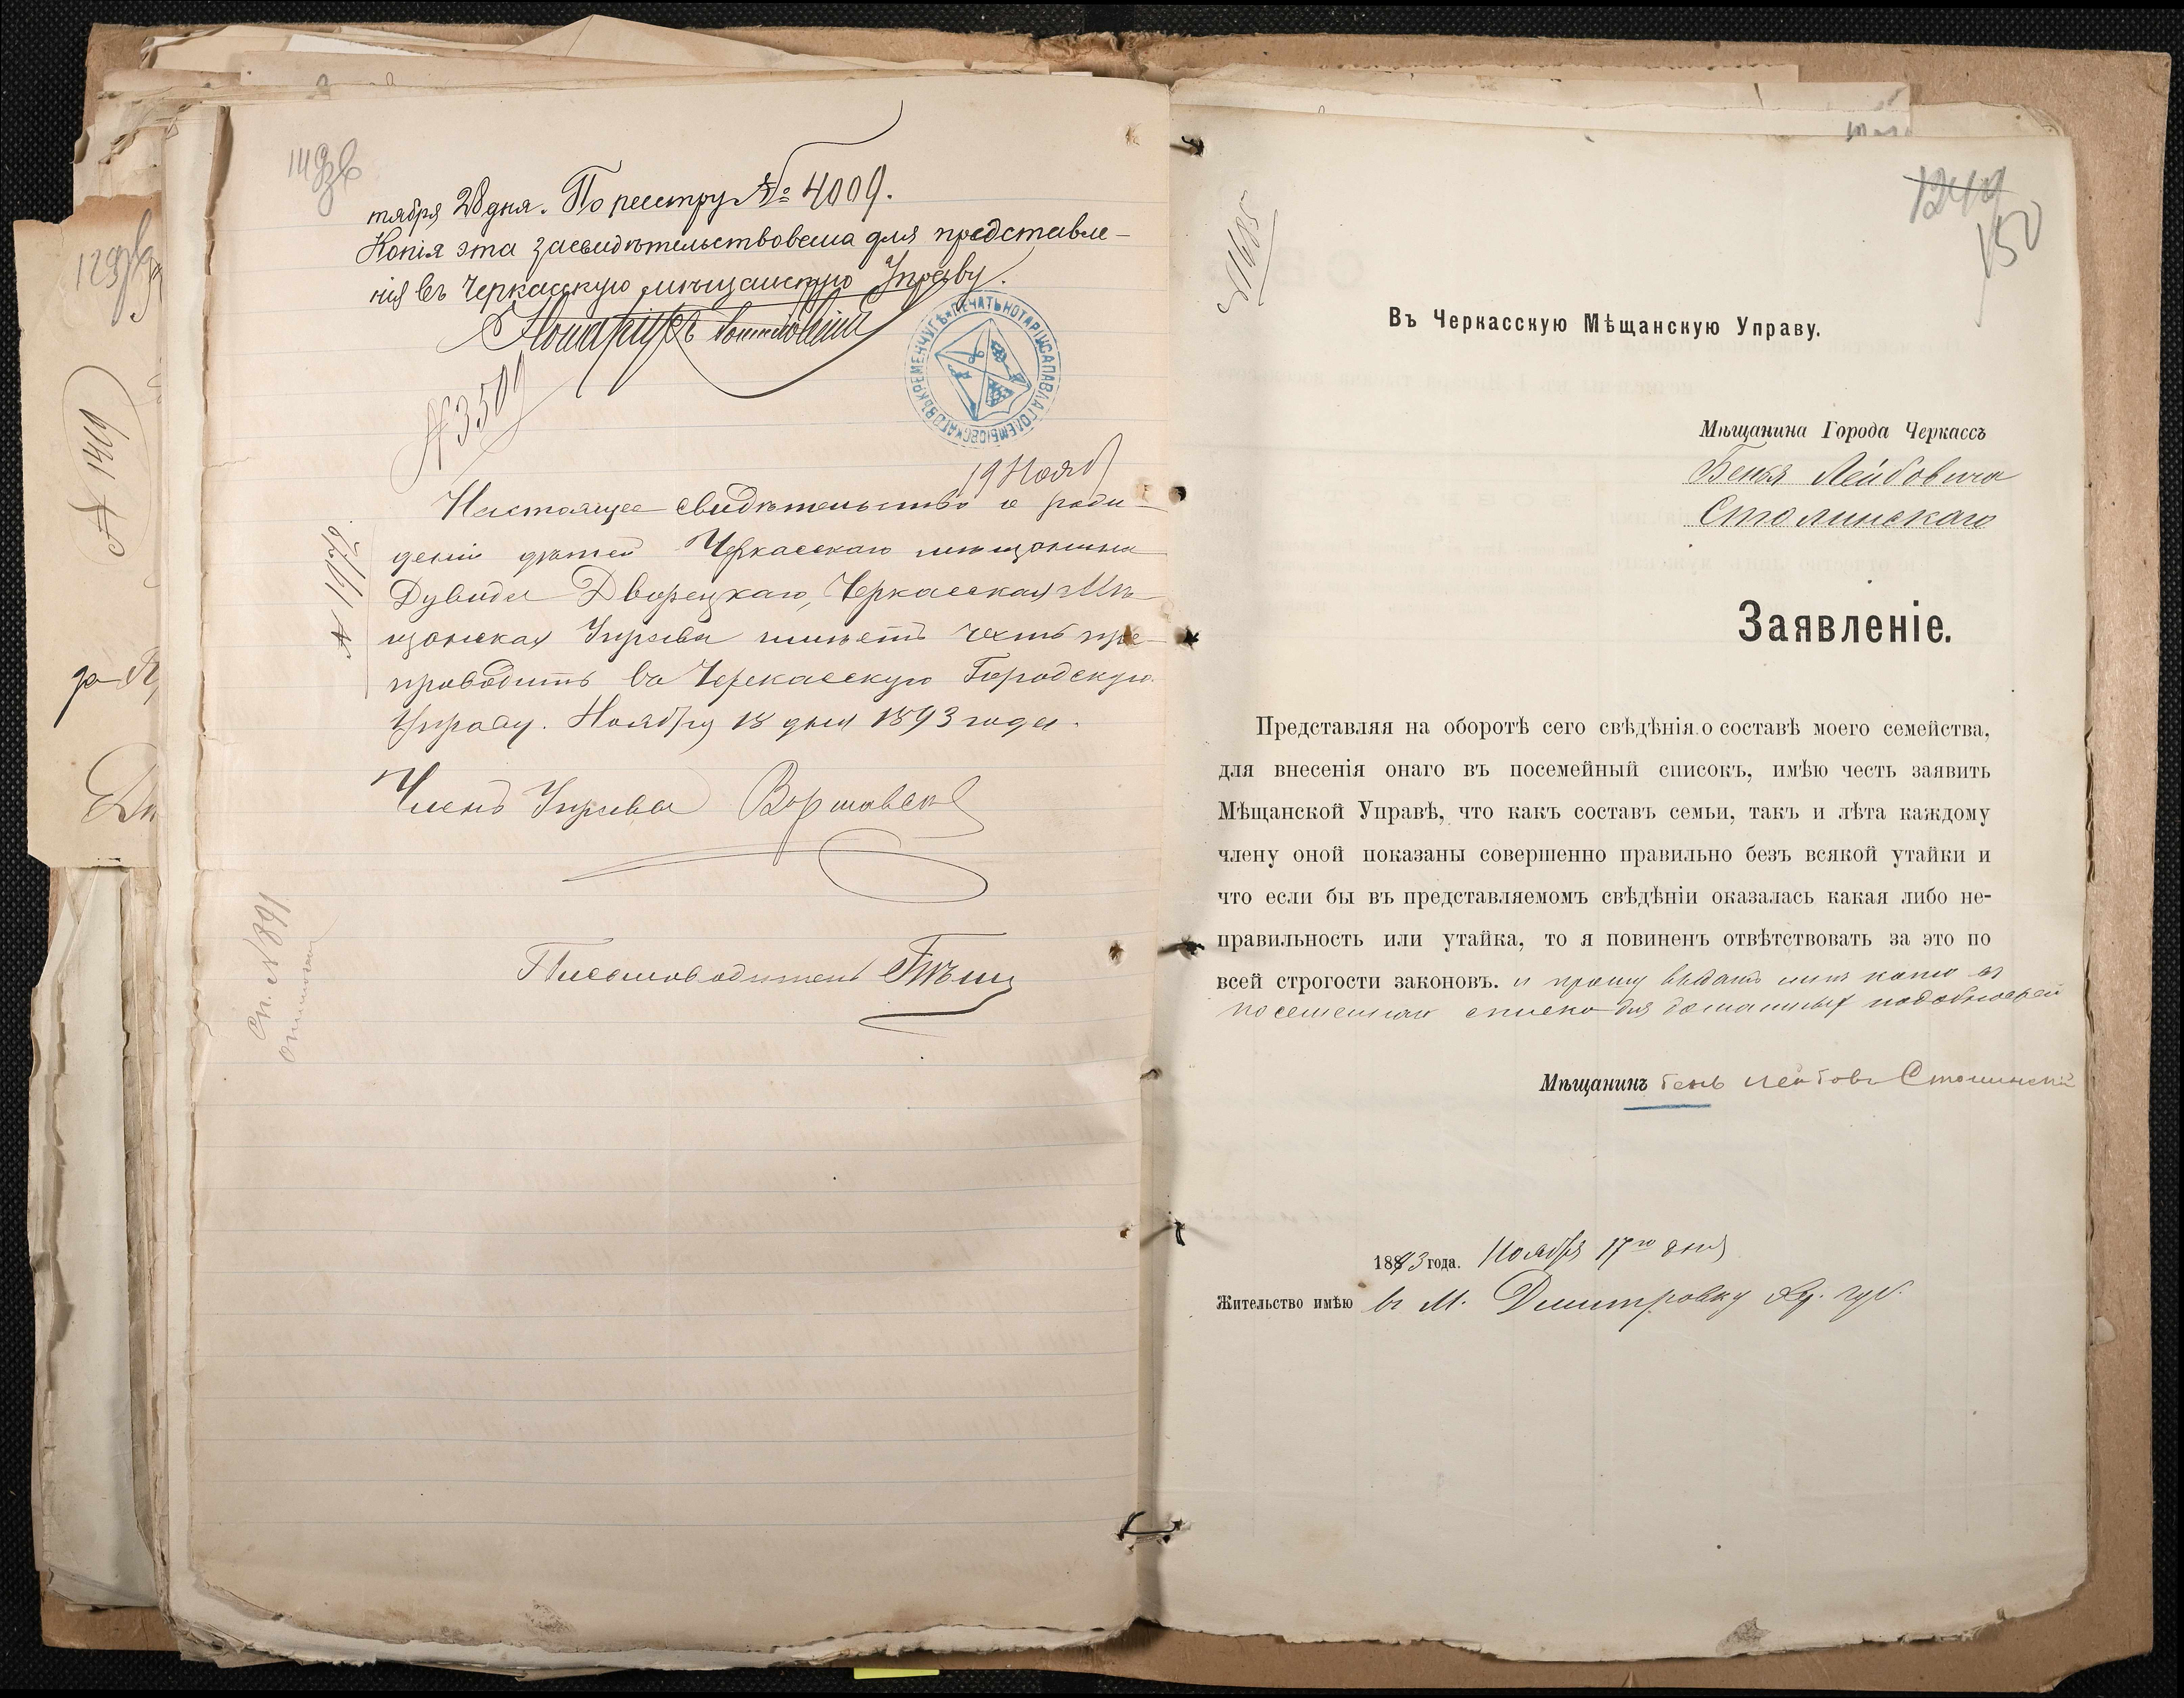 149об
тября 28 дня. По реестру № 4009.
Копія эта засвидѣтельствована для представле-
нія въ Черкасскую мѣщанскую Управу.
Нотаріусъ
№ 3509
19 Нояб
Настоящее свидѣтельство о рож-
деніи дѣтей Черкасскаго мѣщанина
Дувида Дворецкаго, Черкасская Мѣ-
щанская Управа имѣетъ честь пре-
проводить въ Черкасскую Городскую
Управу. Ноября 18 дня 1893 года.
Членъ Управы Варшавск
Письмоводитель
№ 1978.
Сп. № 891
№ 1449
150
№ 1685
Въ Черкасскую Мѣщанскую Управу.
Мѣщанина Города Черкассъ
Беня Лейбовича
Столинскаго
Заявленіе.
Представляя на оборотѣ сего свѣдѣнія о составѣ моего семейства,
для внесенія онаго въ посемейный списокъ, имѣю честь заявить
Мѣщанской Управѣ, что какъ составъ семьи, такъ и лѣта каждому
члену оной показаны совершенно правильно безъ всякой утайки и
что если бы въ представляемомъ свѣдѣніи оказалась какая либо не-
правильность или утайка, то я повиненъ отвѣтствовать за это по
всей строгости законовъ. и прошу выдать мнѣ копію съ
посемейнаго списка для домашныхъ
Мѣщанинъ бень Лейбовъ Столинскій
1893 года. Ноября 17го дня
Жительство имѣю въ М. Дмитровку